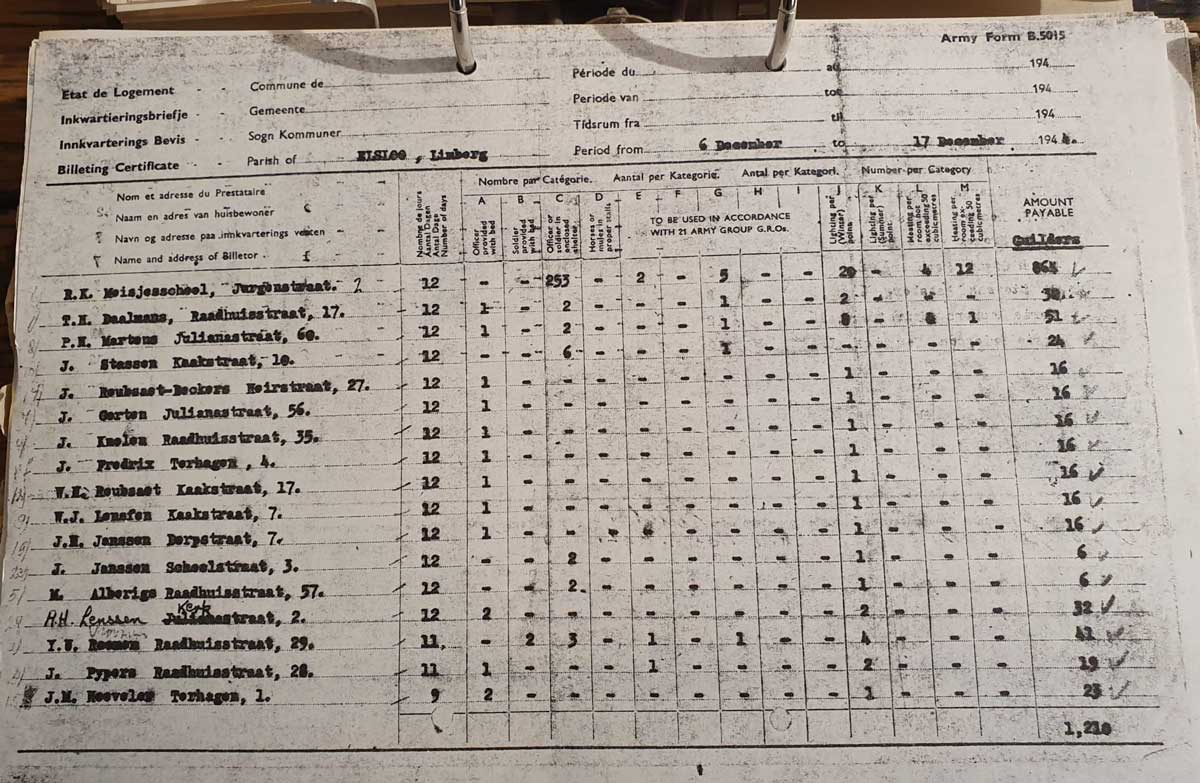 Army Form B.5015
Etat de Logement - - Commune de Période du au 194
Inkwartieringsbriefje - Gemeente Periode van tot 194
Innkvarterings Bevis - Sogn Kommuner Tidsrum fra til 194
Billeting Certificate Parish of ELSLOO, Limburg Period from 6 December to 17 December 1944.
Nom et adresse du Prestataire
Naam en adres van huisbewoner
Navn og adresse paa innkvarterings verten
Name and address of Billetor
Nombre de jours Aantal Dagen Antal Dage Number of days
Nombre par Catégorie. Aantal per Kategorie. Antal per Kategori. Number per Category
A B C D E F G H I J K L M
Officer provided with bed
Soldier provided with bed
Officer or soldier in enclosed shelter
Horses or mules in proper stalls
TO BE USED IN ACCORDANCE WITH 21 ARMY GROUP G.R.Os.
Lighting per (Winter) points
Lighting per (Summer) point
Heating per room not exceeding 50 cubic metres
Heating per room exceeding 50 cubic metres
AMOUNT PAYABLE
Guilders
R.K. Meisjesschool, Jurgenstraat. 2 12 - - 253 - 2 - 5 - - 20 - 4 12 864
T.H. Daalmans, Raadhuisstraat, 17. 12 1 - 2 - - - 1 - - 2 - - - 30
P.H. Martens Julianastraat, 60. 12 1 - 2 - - - 1 - - 1 51
J. Stassen Kaakstraat, 10. 12 - - 6 - - - 1 - - - - - - 24
J. Roubsaet-Beckers Heirstraat, 27. 12 1 - - - - - - - - 1 - - - 16
J. Gerten Julianastraat, 56. 12 1 - - - - - - - - 1 - - - 16
J. Knolen Raadhuisstraat, 35. 12 1 - - - - - - - - 1 - - - 16
J. Fredrix Terhagen, 4. 12 1 - - - - - - - - 1 - - - 16
W.H. Roubsaet Kaakstraat, 17. 12 1 - - - - - - - - 1 - - - 16
W.J. Kaakstraat, 7. 12 1 - - - - - - - - 1 - - - 16
J.H. Janssen Dorpstraat, 7. 12 1 - - - - - - - - 1 - - - 16
J. Janssen Schoolstraat, 3. 12 - - 2 - - - - - - 1 - - - 6
M. Alberigs Raadhuisstraat, 57. 12 - - 2 - - - - - - 1 - - - 6
Kerk
A.H. Lenssen Julianastraat, 2. 12 2 - - - - - - - - 2 - - - 32
Y.W. Raadhuisstraat, 29. 11 - 2 3 - 1 - 1 - - 4 - - - 41
J. Pypers Raadhuisstraat, 28. 11 1 - - - 1 - - - - 2 - - - 19
J.M. Terhagen, 1. 9 2 - - - - - - - - 1 - - - 25
1,210